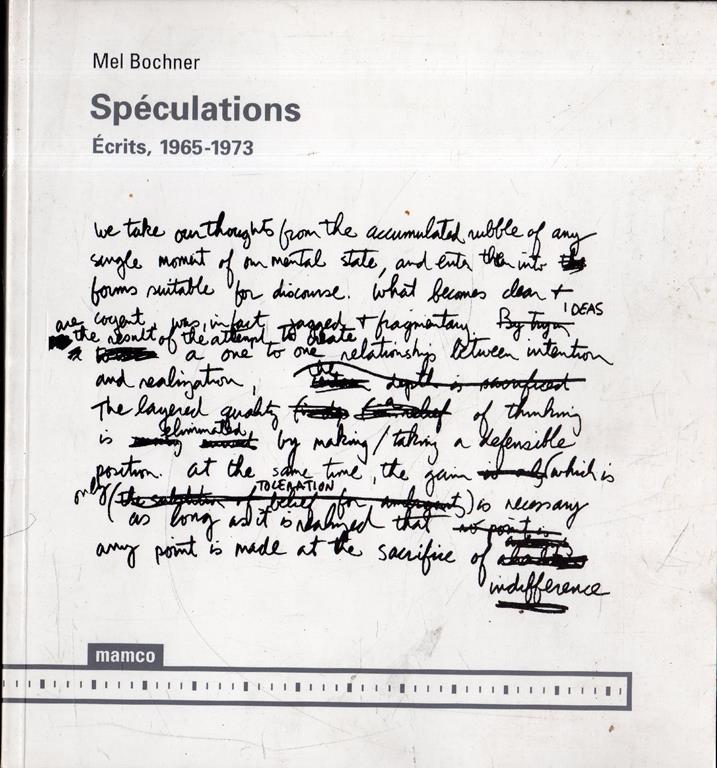 Mel Bochner
Spéculations
Écrits, 1965-1973
We take our thoughts from the accumulated rubble of any
single moment of our mental state, and enter them into
forms suitable for discourse. What becomes clear +
IDEAS
are cogent, was, in fact jagged + fragmentary. By trying
the result of the attempt to create
a one to one relationship between intention
and realization, the depth is sacrificed
The layered quality relief of thinking
eliminated
is by making/taking a defensible
position. At the same time, the gain (which is
TOLERATION
only (the substitution of belief for ) is necessary
as long as it is realized that no point is
any point is made at the sacrifice of
indifference
mamco